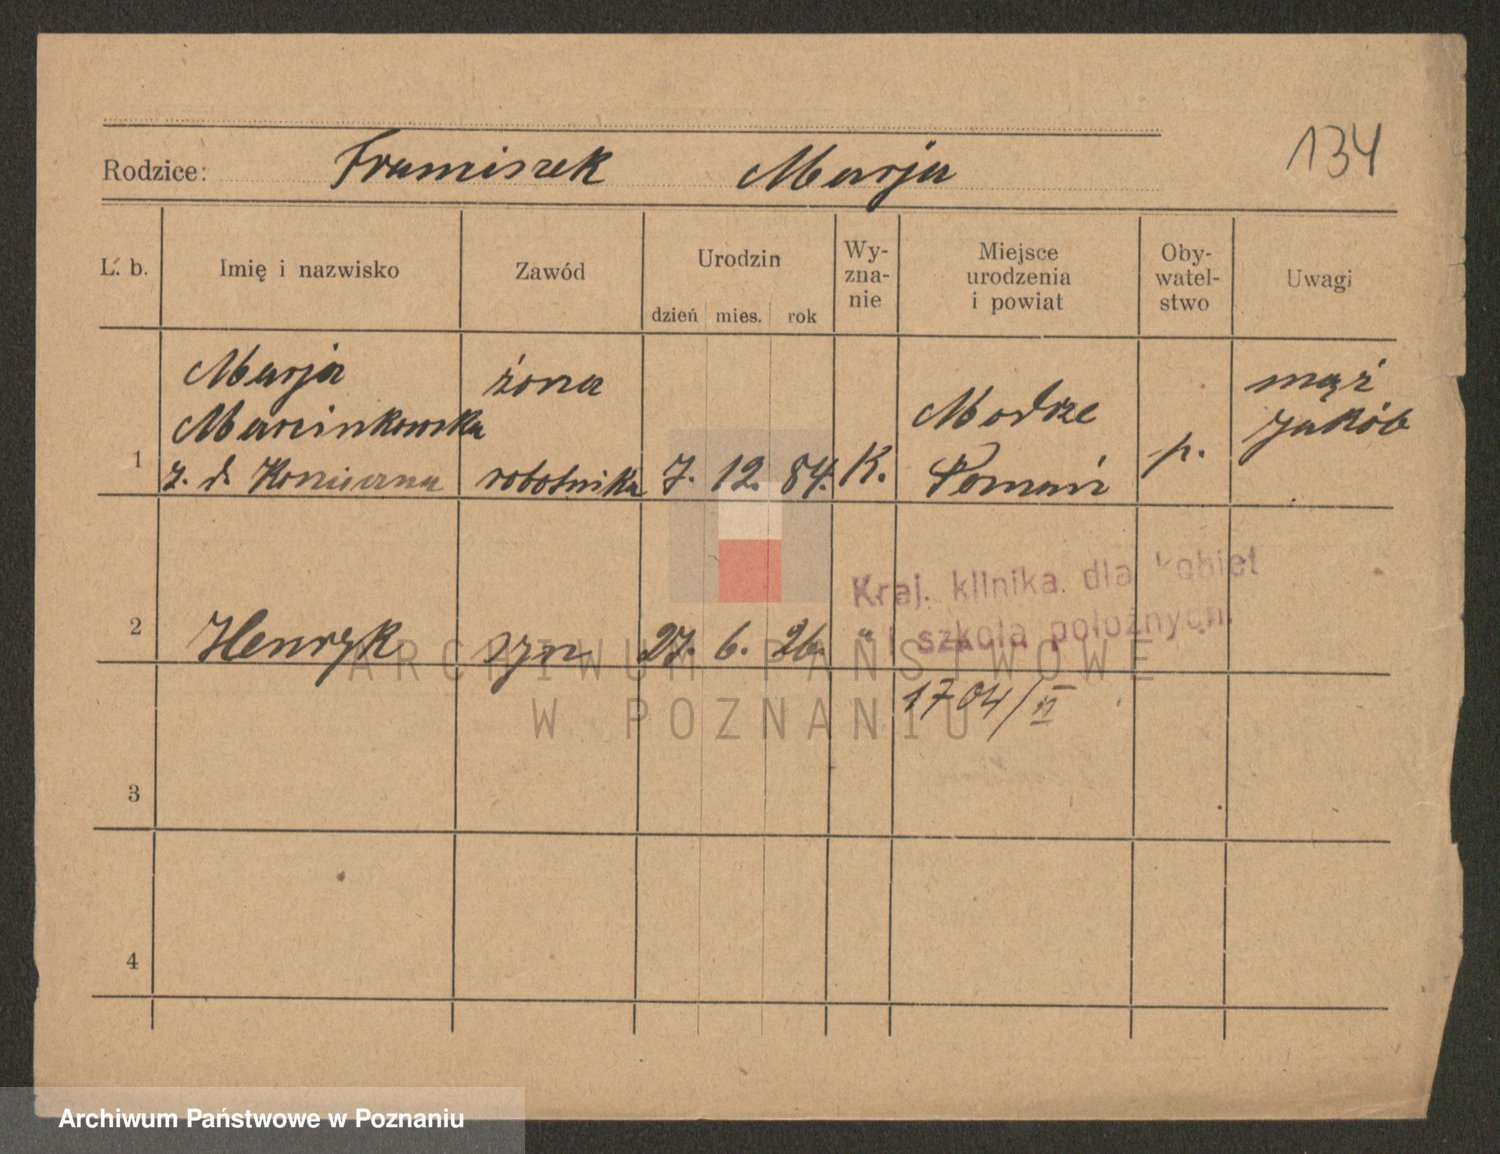 134
Rodzice: Franciszek Marja
L. b. Imię i nazwisko Zawód Urodzin dzień mies. rok Wy-zna-nie Miejsce urodzenia i powiat Oby-watel-stwo Uwagi
1
Marja żona mąż
Marcinkowska Modrze Jakób
z. d. Konieczna robotnika 7. 12. 84. K. Poznań p.
Kraj. klinika dla kobiet
i szkoła położnych.
2 Henryk syn 27. 6. 26. "
1704/II
3
4
ARCHIWUM PAŃSTWOWE
W POZNANIU
Archiwum Państwowe w Poznaniu